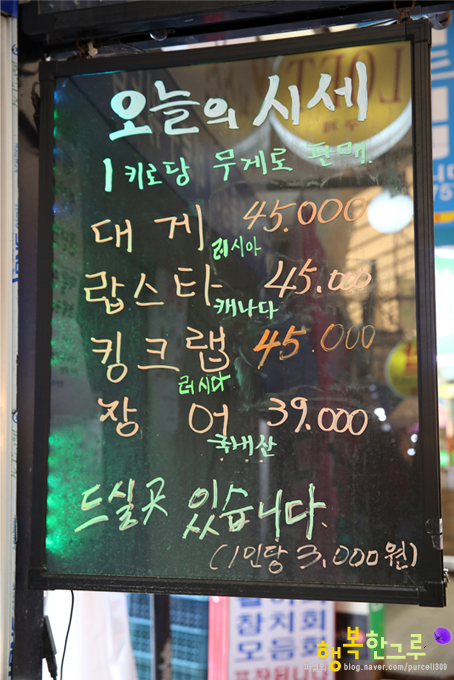 오늘의 시세
1 키로당 무게로 판매.
대게 45.000
러시아
랍스타 45.000
캐나다
킹크랩 45.000
러시다
장어 39.000
국내산
드실곳 있습니다.
(1인당 3,000원)
참치회
모듬회
행복한그루
blog.naver.com/purcell309